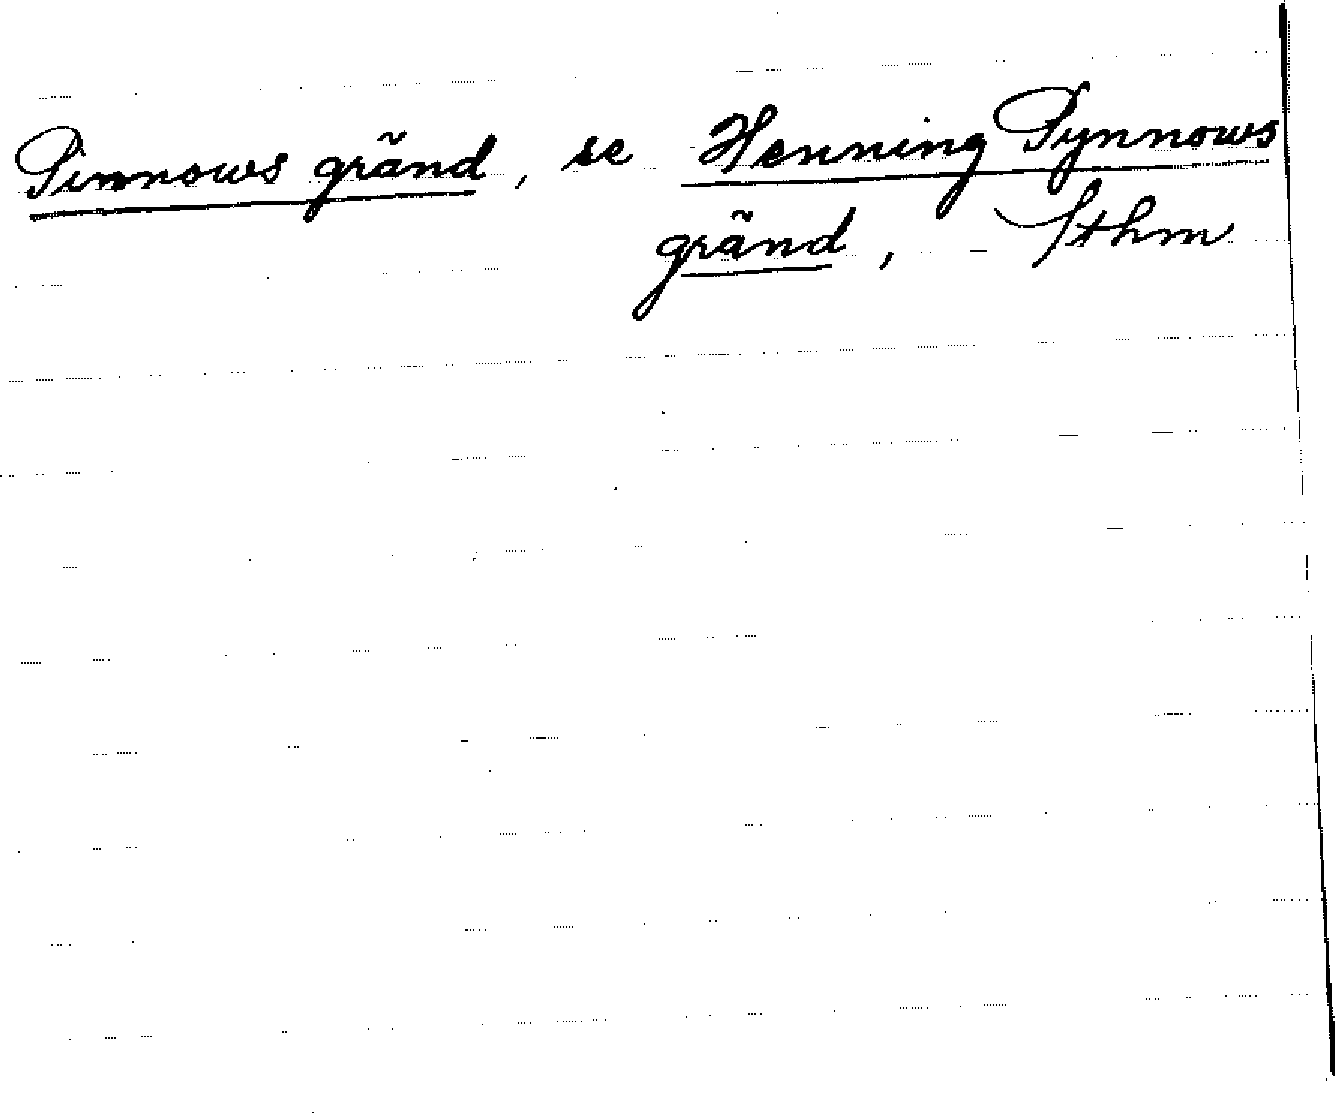 Pinnows gränd, se Henning Pynnows
gränd, - Sthm